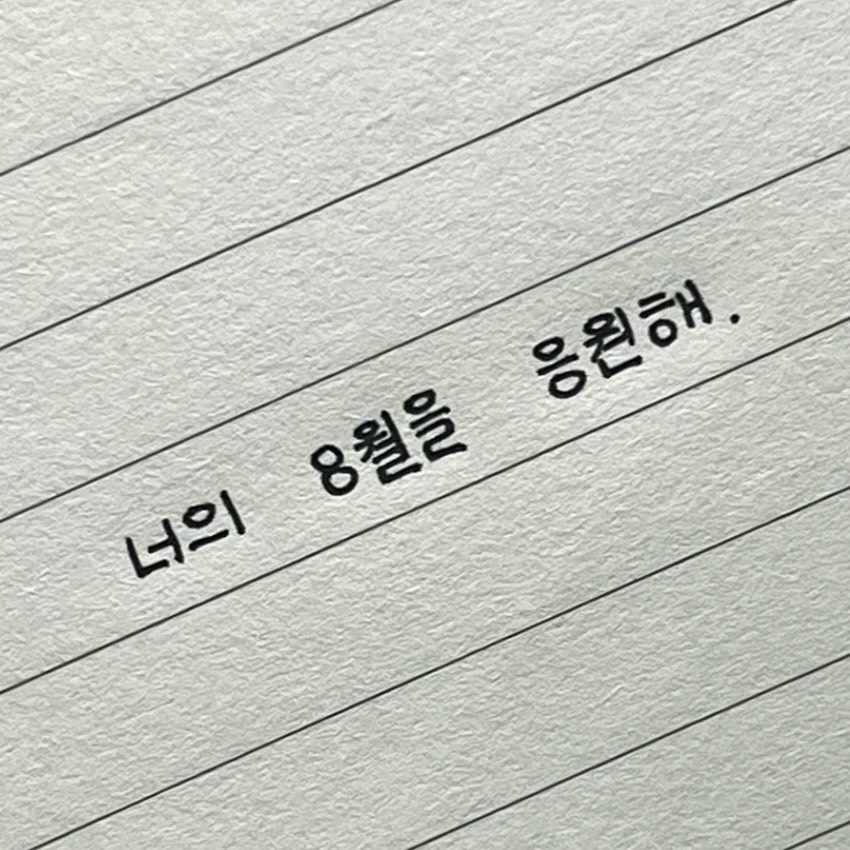 너의 8월을 응원해.